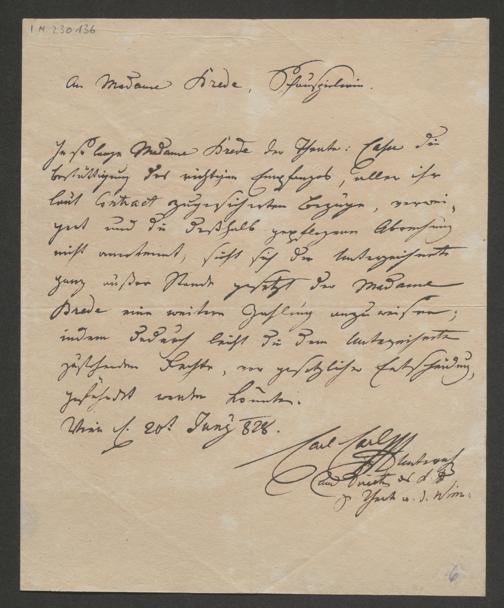 I.N. 230.136
An Madame Krede, Schauspielerin.
In so lange Madame Krede der Theater: Cassa die
Bestättigung des richtigen Empfanges, aller ihr
laut Contract zugesicherten Bezüge, verwei-
gert und die deßhalb gepflogene Abrechnung
nicht anerkennt, sieht sich der Unterzeichnete
ganz außer Stande gesetzt der Madame
Krede eine weitere Zahlung anzuweisen;
indem dadurch leicht die dem Unterzeichneten
zustehenden Rechte, vor gesetzlicher Entscheidung,
gefährdet werden könnten.
Wien d. 20t Juny 828.
Carl Carl
und Direktor des d.
Theat a. d. Wien.
6